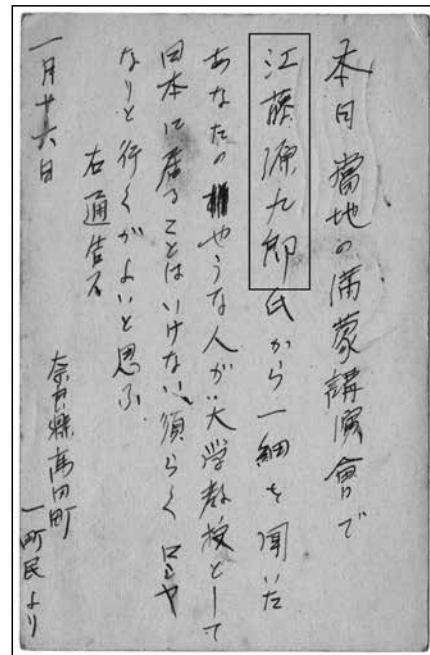 本日當地の満蒙講演會で
江藤源九郎氏から一細を聞いた
あなたのやうな人が大学教授として
日本に居ることはいけない須らくロシヤ
なりと行くがよいと思ふ
右通告ス
一月十六日
奈良縣高田町
一町民より